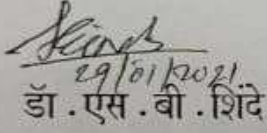 29/01/2021
डॉ . एस . बी . शिंदे